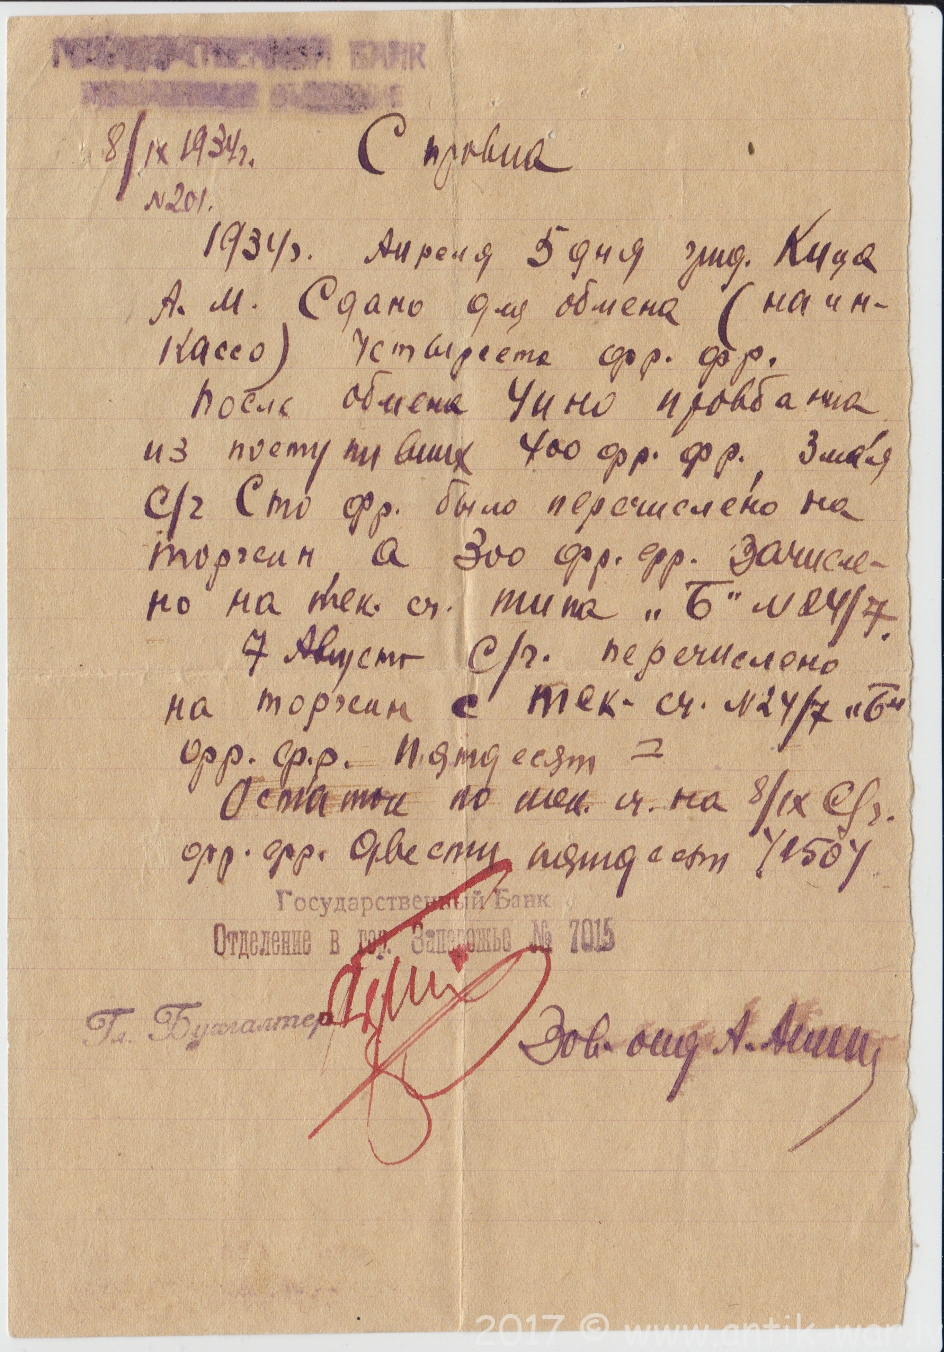 ГОСУДАРСТВЕННЫЙ БАНК
8/IX 1934г. Справка
№201.
1934г. Апреля 5 дня гражд. Кица
А. М. Сдано для обмена (на ин-
кассо) Четыреста фр. фр.
После обмена Чрно правбанка
из поступивших 400 фр. фр. 3 мая
с/г Сто фр. было перечислено на
торгсин а 300 фр. фр. зачисле-
но на тек. сч. типа „Б" №24/7.
7 Август с/г. перечислено
на торгсин с тек. сч. №24/7 „Б"
фр. фр. пятдесят =
Остаток по тек. сч. на 8/IX с/г.
фр. фр. Двести пятдесят /250/
Государственный Банк
Отделение в гор. Запорожье № 7015
Гл. Бухгалтер
Зав. отд А.
2017 © www.antik.war